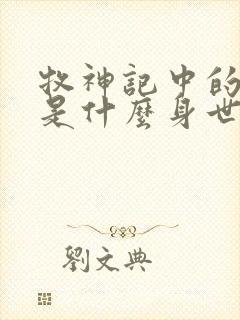 牧神記中的
是什麼身世
劉文典